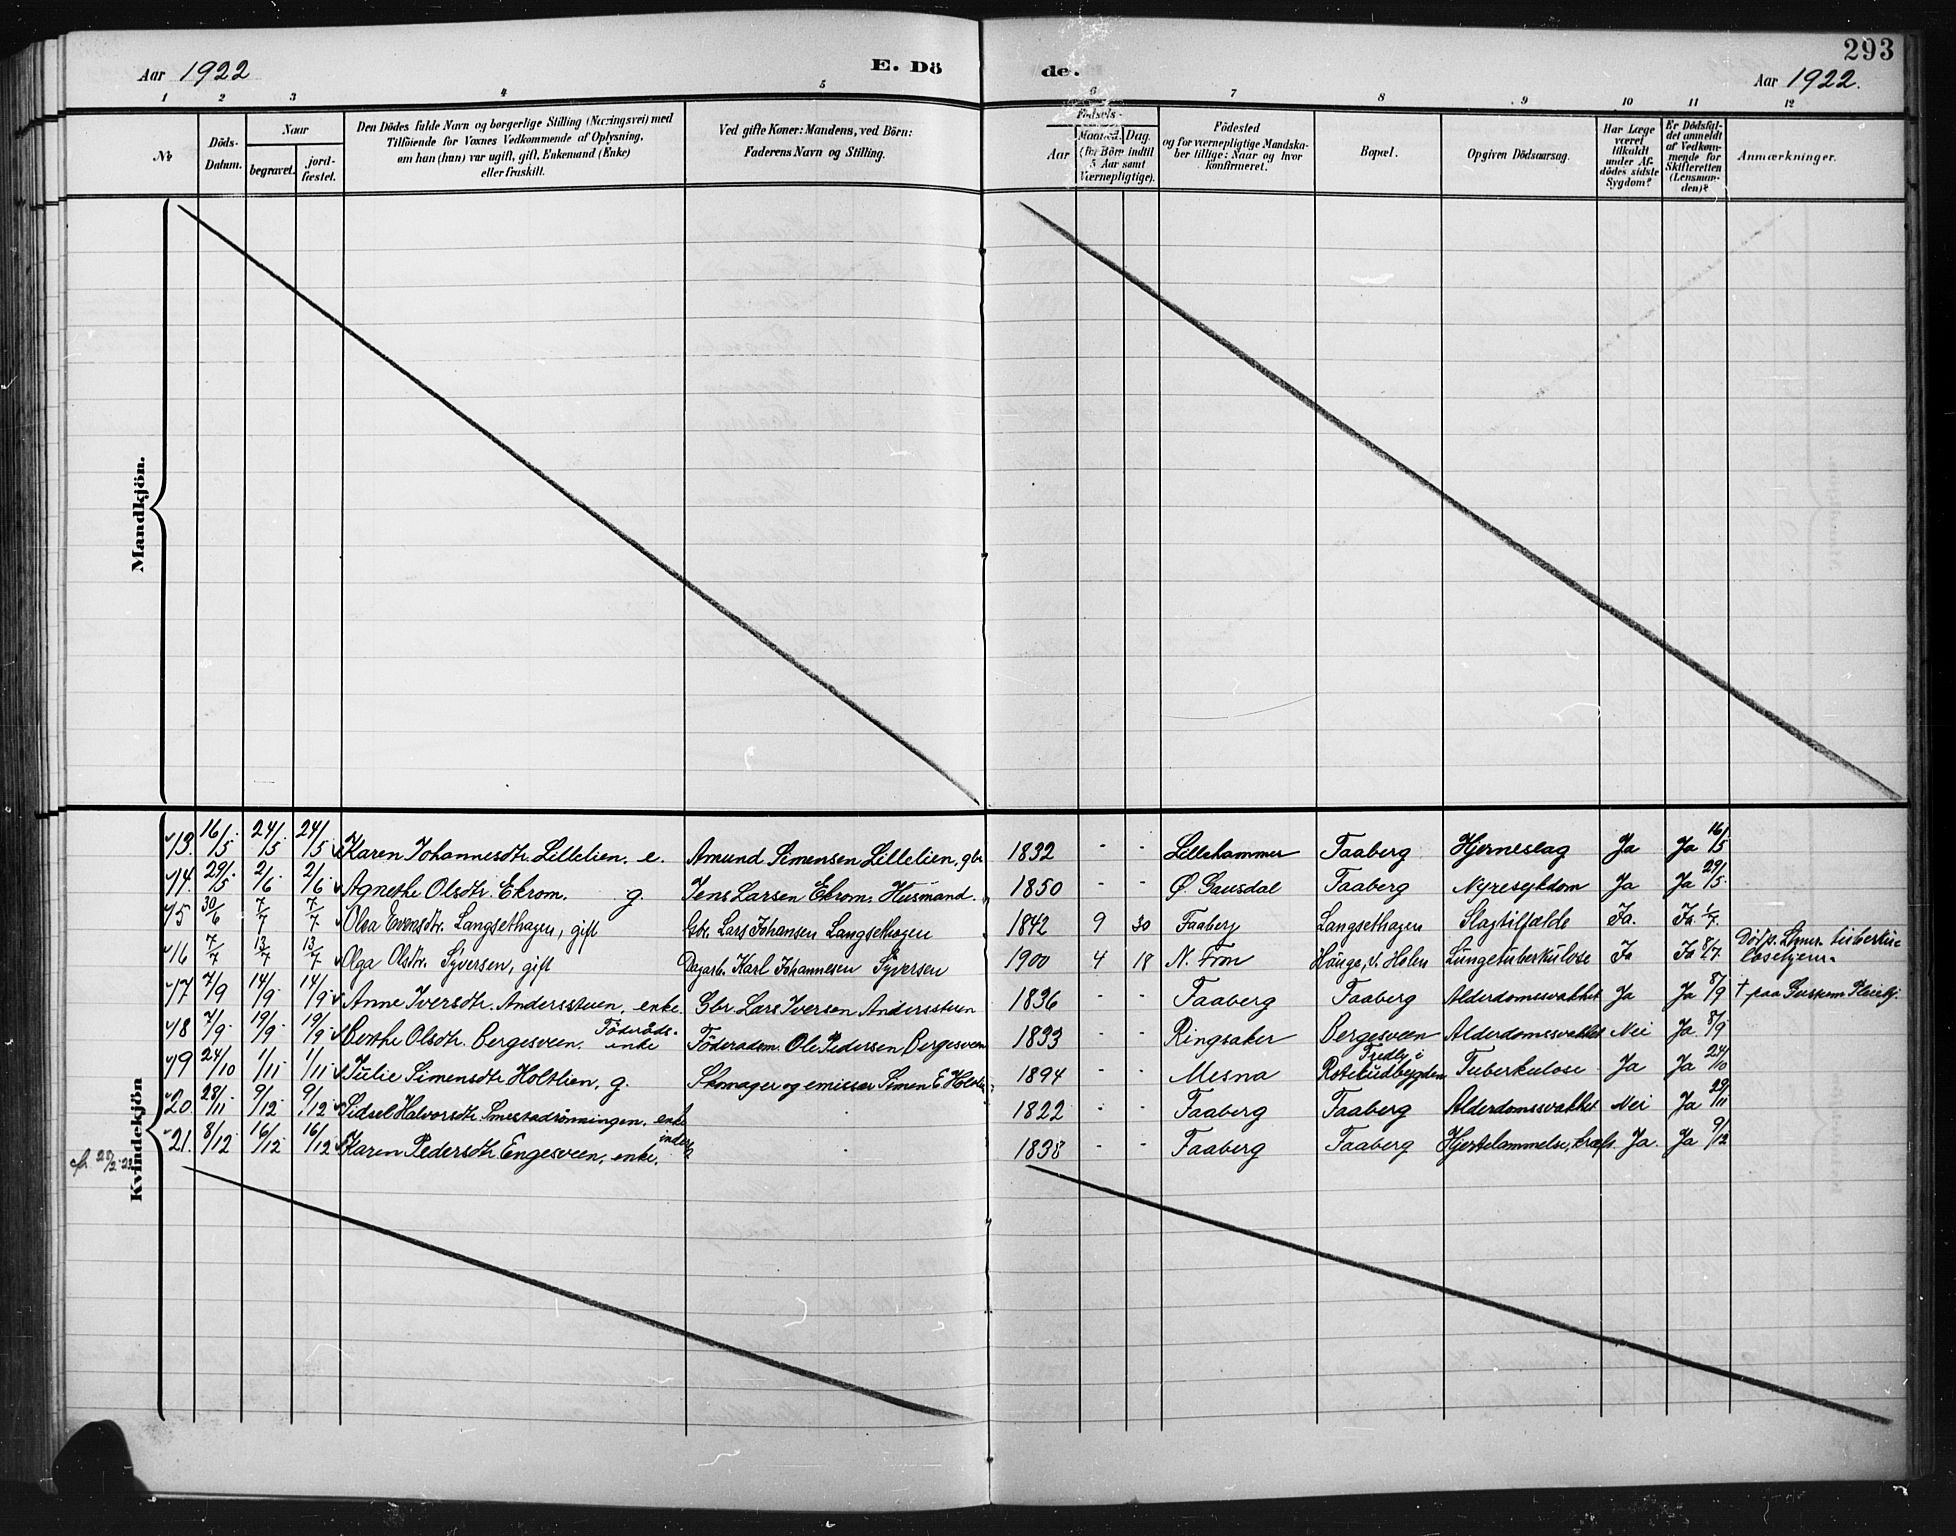 293
Aar 1922
E. Dö
de.
Aar 1922.
1 2 3 4 5 6 7 8 9 10 11 12
No
Döds-Datum.
Naar
begravet.
jord-fæstet.
Den Dödes fulde Navn og borgerlige Stilling (Næringsvei) med
Tilföiende for Voxnes Vedkommende af Oplysning,
om han (hun) var ugift, gift, Enkemand (Enke)
eller fraskilt.
Ved gifte Koner: Mandens, ved Börn:
Faderens Navn og Stilling.
Födsels-
Aar
Maaned.
Dag.
(for Börn indtil
5 Aar samt
Værnepligtige).
Födested
og for værnepligtige Mandska-
ber tillige: Naar og hvor
konfirmeret.
Bopæl.
Opgiven Dödsaarsag.
Har Læge
været
tilkaldt
under Af-
dödes sidste
Sygdom?
Er Dödsfal-
det anmeldt
af Vedkom-
mende for
Skifteretten
(Lensman-
den)?
Anmærkninger.
Mandkjön.
Kvindekjön
13. 16/5 24/5 24/5 Karen Johannesdtr. Lillelien. e. Amund Simensen Lillelien, gbr 1832 - - Lillehammer Faaberg Hjerneslag Ja Ja 16/5
14. 29/5 2/6 2/6 Agnethe Olsdtr. Ekrom. g. Jens Larsen Ekrom, Husmand. 1850 - - Ø. Gausdal Faaberg Nyresykdom Ja Ja 29/5
15 30/6 7/7 7/7 Olea Evensdtr. Langsethagen, gift Gbr. Lars Johansen Langsethagen 1842 9 30 Faaberg Langsethagen Slagtilfælde Ja. Ja 1/7.
16 7/7 13/7 13/7 Olga Olsdtr. Syversen, gift Dagarb. Karl Johannesen Syversen 1900 4 18 N. Fron Lungetuberkulose Ja Ja 8/7. Död p. tuberku-
losehjem.
17 7/9 14/9 14/9 Anne Iversdtr. Andersstuen, enke. Gbr. Lars Iversen Andersstuen 1836 - - Faaberg Faaberg Alderdomssvakhet Ja Ja 8/9 † paa Pleiehj.
18 7/9 19/9 19/9 Berthe Olsdtr. Bergesveen. Föderåds-
enke Föderadsm. Ole Pedersen Bergesveen 1833 - - Ringsaker Bergesveen Alderdomssvakhet Nei Ja 8/9
19 24/10 1/11 1/11 Julie Simensdtr Holtlien, g. Skomager og emissær Simen E. 1894 - - Mesna Fredly i
Rotsudbygden Tuberkulose Ja Ja 24/10
20. 28/11 9/12 9/12 Sidsel Halvorsdtr. Smestadrönningen. enke 1822 - - Faaberg Faaberg Alderdomssvakhet Nei Ja 29/11
21. 8/12 16/12 16/12 Karen Pedersdtr Engesveen, enke. 1838 - - Faaberg Faaberg Hjertelammelse, Ja. Ja 9/12